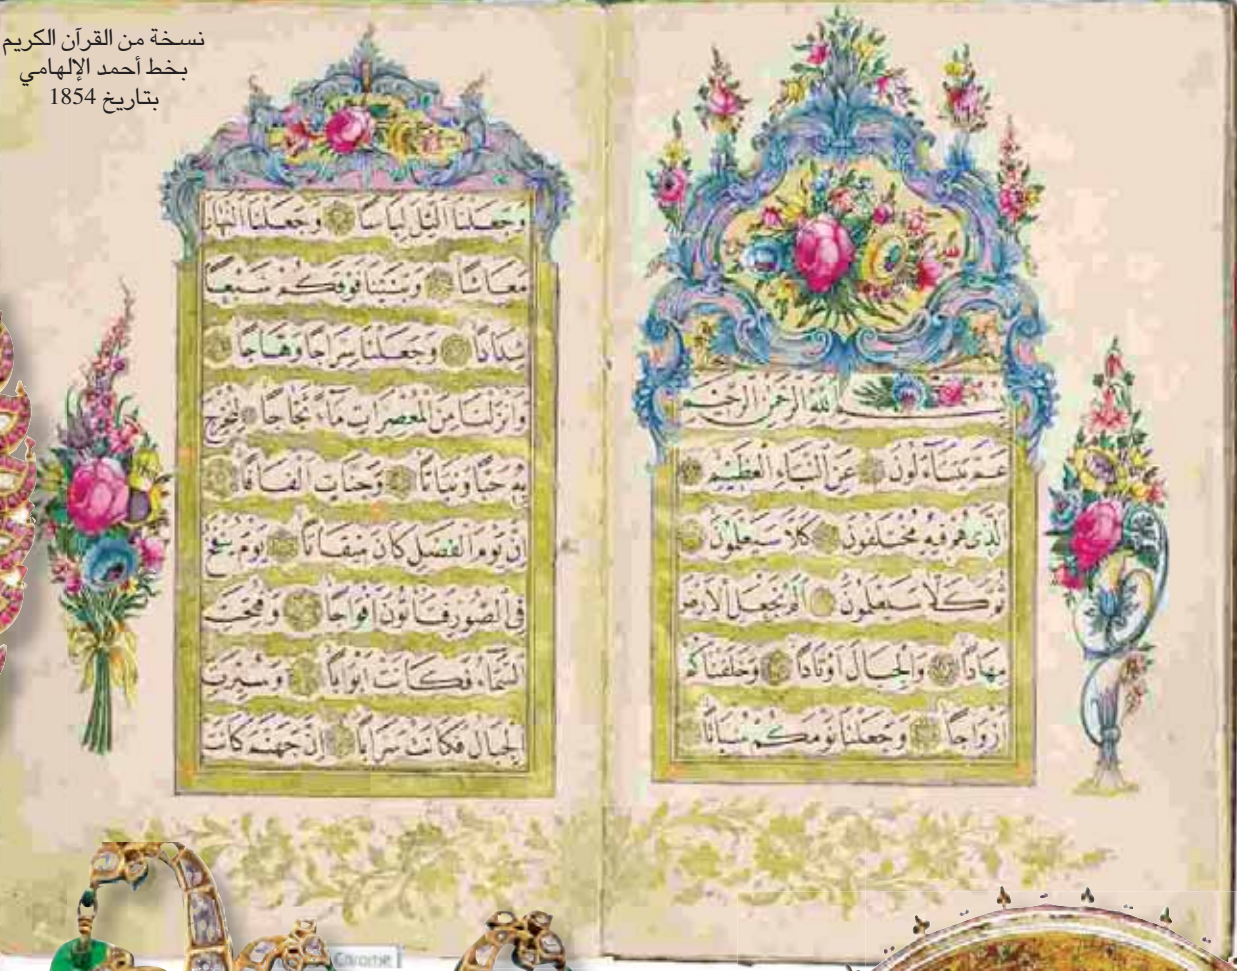 نسخة من القرآن الكريم
بخط أحمد الإلهامي
بتاريخ 1854
بسم الله الرحمن الرحيم
عَمَّ يَتَسَاءَلُونَ عَنِ النَّبَاءِ الْعَظِيمِ
الَّذِى هُمْ فِيهِ مُخْتَلِفُونَ كَلَّا سَيَعْلَمُونَ
ثُمَّ كَلَّا سَيَعْلَمُونَ اَلَمْ نَجْعَلِ الْاَرْضَ
مِهَادًا وَالْجِبَالَ اَوْتَادًا وَخَلَقْنَاكُمْ
اَزْوَاجًا وَجَعَلْنَا نَوْمَكُمْ سُبَاتًا
وَجَعَلْنَا الَّيْلَ لِبَاسًا وَجَعَلْنَا النَّهَارَ
مَعَاشًا وَبَنَيْنَا فَوْقَكُمْ سَبْعًا
شِدَادًا وَجَعَلْنَا سِرَاجًا وَهَّاجًا
وَاَنْزَلْنَا مِنَ الْمُعْصِرَاتِ مَاءً ثَجَّاجًا لِنُخْرِجَ
بِهِ حَبًّا وَنَبَاتًا وَجَنَّاتٍ اَلْفَافًا
اِنَّ يَوْمَ الْفَصْلِ كَانَ مِيقَاتًا يَوْمَ يُنْفَخُ
فِى الصُّورِ فَتَاْتُونَ اَفْوَاجًا وَفُتِحَتِ
السَّمَاءُ فَكَانَتْ اَبْوَابًا وَسُيِّرَتِ
الْجِبَالُ فَكَانَتْ سَرَابًا اِنَّ جَهَنَّمَ كَانَتْ
Carome